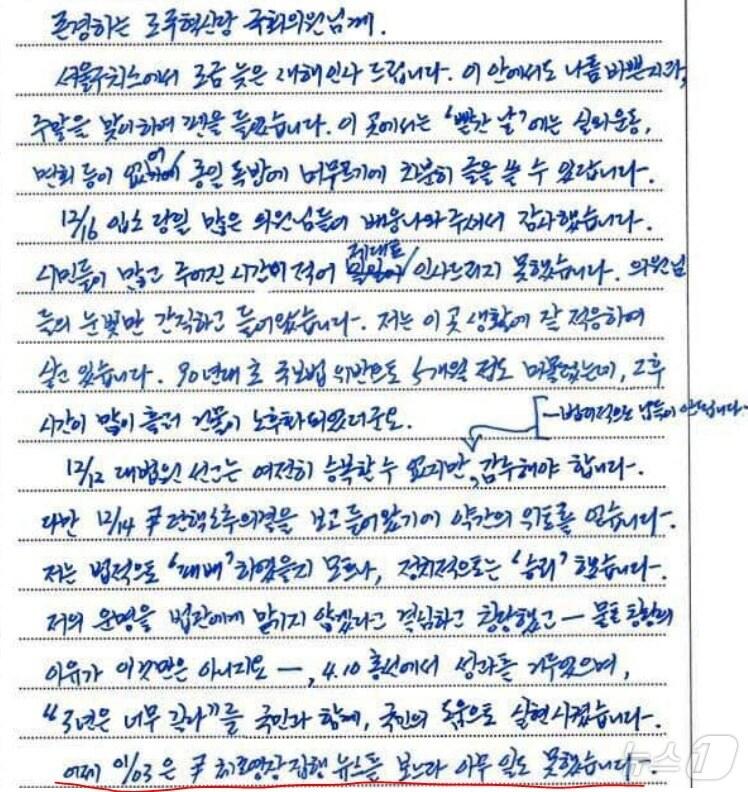 존경하는 조국혁신당 국회의원님께.
서울구치소에서 조금 늦은 새해인사 드립니다. 이 안에서도 나름 바쁜지라,
주말을 맞이하여 펜을 들었습니다. 이 곳에서는 '빨간 날'에는 실외운동,
면회 등이 없어 종일 독방에 머무르기에 차분히 글을 쓸 수 있답니다.
12/16 입소 당일 많은 의원님들이 배웅나와주셔서 감사했습니다.
시민들이 많고 주어진 시간이 적어 제대로 인사드리지 못했습니다. 의원님
들의 눈빛만 간직하고 들어왔습니다. 저는 이 곳 생활에 잘 적응하여
살고 있습니다. 90년대 초 국보법 위반으로 5개월 정도 머물렀는데, 그 후
시간이 많이 흘러 건물이 노후화되었더군요.
―법리적으로 납득이 안됩니다―
12/12 대법원 선고는 여전히 승복할 수 없지만, 감수해야 합니다.
다만 12/14 尹 탄핵소추의결을 보고 들어왔기에 약간의 위로를 얻습니다.
저는 법적으로 '패배'하였을지 모르나, 정치적으로는 '승리'했습니다.
저의 운명을 법관에게 맡기지 않겠다고 결심하고 창당했고 ― 물론 창당의
이유가 이것만은 아니지요 ―, 4.10 총선에서 성과를 거두었으며,
"3년은 너무 길다"를 국민과 함께, 국민의 도움으로 실현시켰습니다.
어제 01/03은 尹 체포영장 집행 뉴스를 보느라 아무 일도 못했습니다.
뉴스1